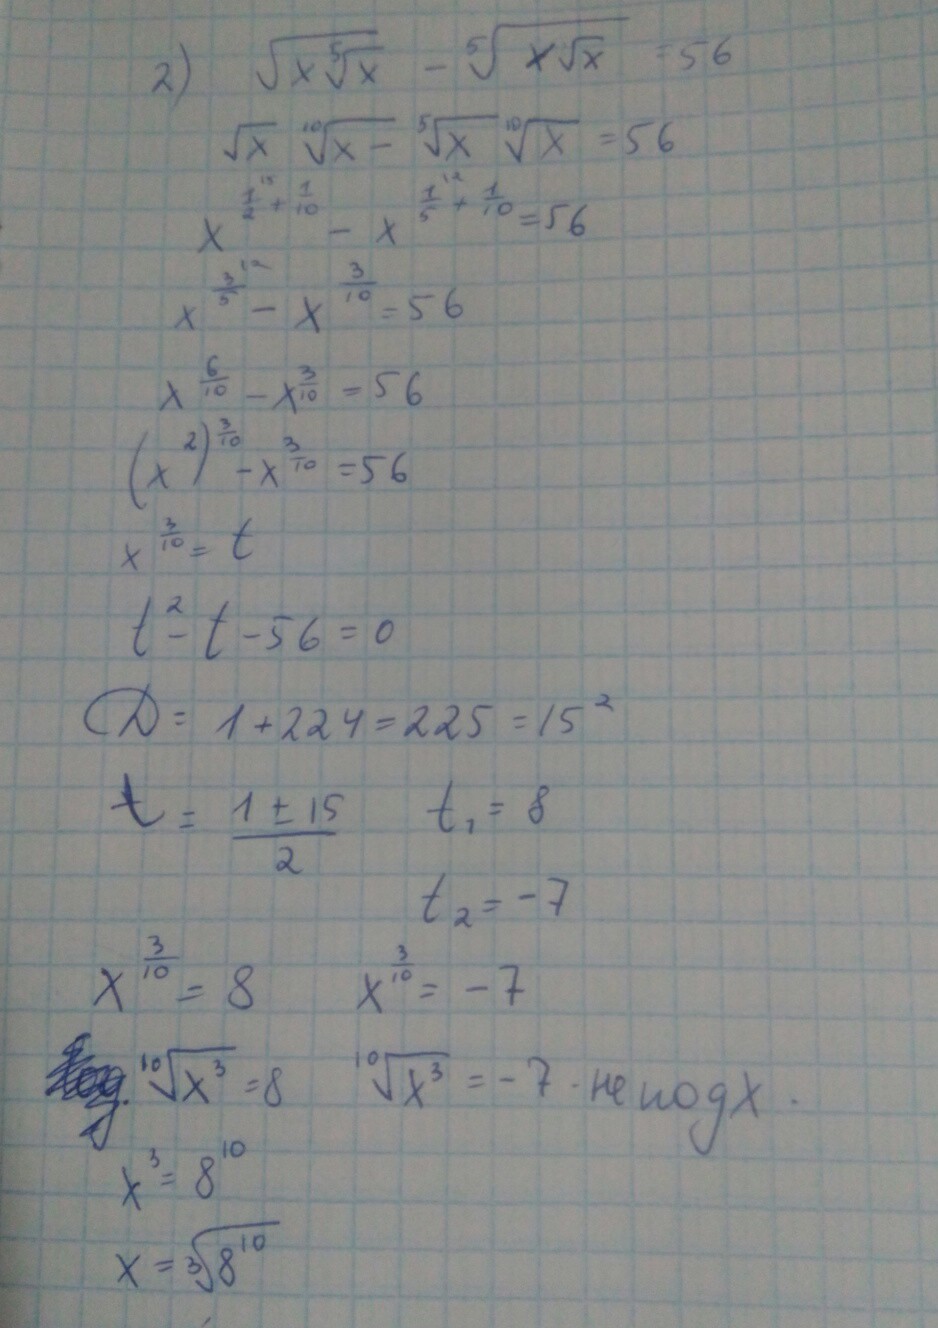 2) √(x ⁵√x) - ⁵√(x√x) = 56
√x ¹⁰√x - ⁵√x ¹⁰√x = 56
x^(1/2 + 1/10) - x^(1/5 + 1/10) = 56
x^(3/5) - x^(3/10) = 56
x^(6/10) - x^(3/10) = 56
(x²)^(3/10) - x^(3/10) = 56
x^(3/10) = t
t² - t - 56 = 0
D = 1 + 224 = 225 = 15²
t = (1 ± 15)/2 t₁ = 8
t₂ = -7
x^(3/10) = 8 x^(3/10) = -7
¹⁰√x³ = 8 ¹⁰√x³ = -7 · не подх.
x³ = 8¹⁰
x = ³√8¹⁰